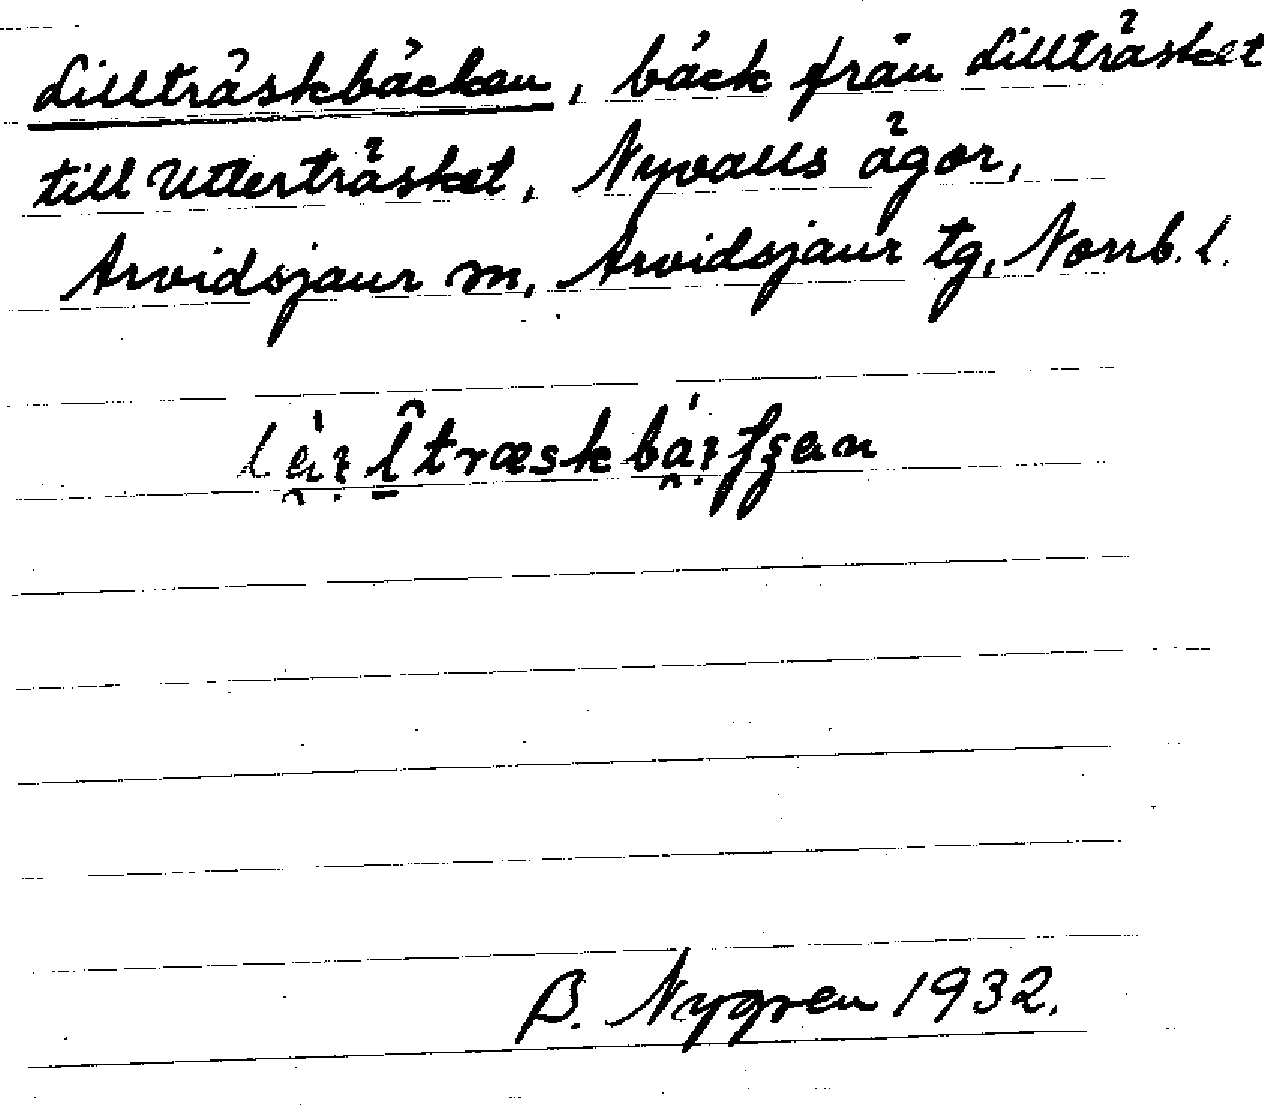 Lillträskbäcken, bäck från Lillträsket
till Utterträsket, Nyvalls ägor,
Arvidsjaur m, Arvidsjaur tg, Norrb. l.
B. Nygren 1932.